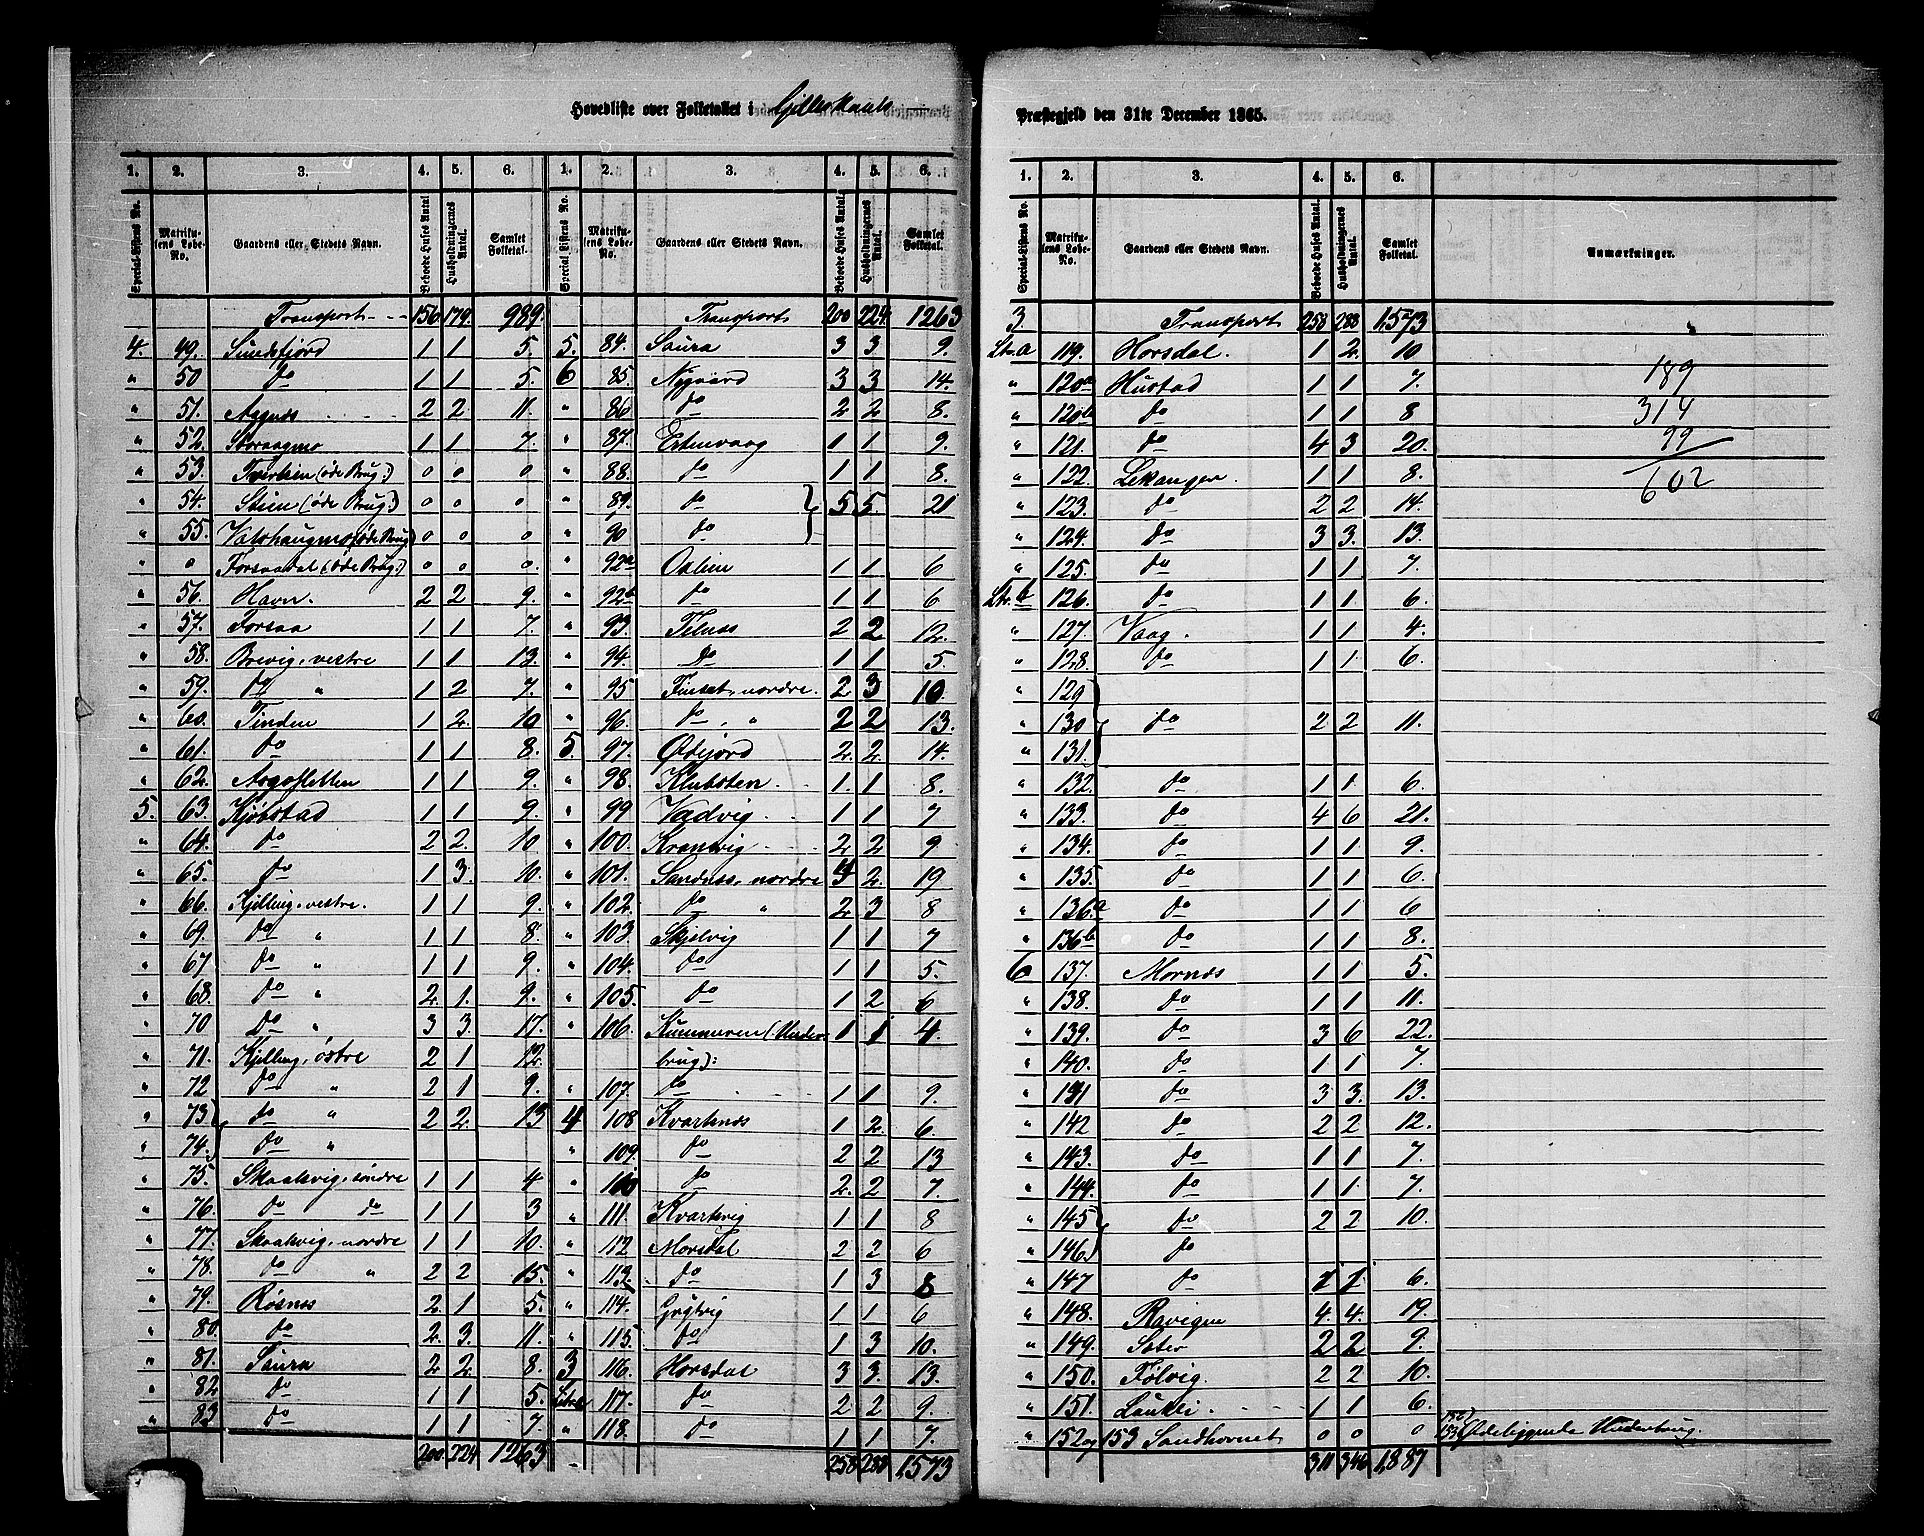 Hovedliste over Folketallet i Gilleskaals Præstegjeld den 31te December 1865.
1. 2. 3. 4. 5. 6.
Special-Listens No. Matrikulens Løbe-No. Gaardens eller Stedets Navn. Beboede Huses Antal Husholdningernes Antal. Samlet Folketal.
Transport 156 179. 989.
4. 49. Sundsfjord 1 1 5.
" 50 do 1 1 5.
" 51. Aagnæs 2 2 11.
" 52. Storaagmo 1 1 7.
" 53. (øde Brug:) 0 0 0
" 54. Stien (øde Brug:) 0 0 0
" 55. Vatshaugmo (øde Brug) 0 0 0
" 0 Forsaadal (øde Brug:) 0 0 0.
" 56. Havn. 2 2 9.
" 57. Forsaa 1 1 7.
" 58. Brevig, vestre 1 1 13.
" 59. do " 1 2 7.
" 60. Tinden 1 2. 10
" 61. do 1 1 8.
" 62. Aagesletten 1 1 9.
5. 63. Kjøbstad 1 1 9.
" 64. do 2 2. 10
" 65. do 1 3. 10.
" 66. Kjelling, vestre. 1 1 9.
" 69. do " 1 1 8.
" 67 do " 1 1 9.
" 68. do " 2. 1. 9.
" 70 do " 3 3. 17.
" 71. Kjelling, østre 2 1 12.
" 72 do " 2 1 9.
" 73 do " 2 2. 13
" 74. do "
" 75. Skaalvig, søndre 1 1 4
" 76. do do 1 1 3
" 77. Skaalvig, nordre 1 1 10.
" 78. do " 2 2 15.
" 79. Røsnes 2. 1 5.
" 80. do 2. 3. 11.
" 81. Saura 2 2. 8.
" 82. do 1 1 5.
" 83 do 1 1 7.
200 224 1263
1. 2. 3. 4. 5. 6.
Special Listens No. Matrikulens Løbe-No. Gaardens eller Stedets Navn. Beboede Huses Antal Husholdningernes Antal. Samlet Folketal.
Transport 200 224. 1263
5. 84. Saura 3 3. 9.
6 85. Nygaard 3 3 14.
" 86 do 2 2 8.
" 87. Ertenvaag 1 1 9.
" 88. do 1 1 8.
" 89. do 5 5. 21
" 90 do
" 92a Oalien 1 1 6
" 92b do 1 1 6
" 93. Telnæs 2 2 12.
" 94. do 1 1 5.
" 95 Finset, nordre. 2 3 10.
" 96. do " 2 2 13.
5. 97. Ødejord 2. 2. 14.
" 98. Klubsten 1. 1 8.
" 99 Vadvig 1 1 7
" 100. Kranvig 2. 2 9
" 101. Sandnes, nordre 4 2. 19
" 102. do " 2. 3 8
" 103. Skjelvig 1 1 7
" 104. do 1 1 5.
" 105. do 1 2 6
" 106. (Underbrug): 1 1 4.
" 107. do 1 1 9.
4 108 Kvartnes 1 2. 6.
" 109. do 2 2 13
" 110 do 2. 2 7.
" 111. Kvartvig 1 1 8
" 112 Morsdal 2 2 6
" 113. do 1 3 8
" 114. Grytvig 1 1 6
" 115. do 1 3 10.
3 116. Horsdal 3 3. 13.
Litr. a 117. do 2 2 9.
" 118. do 1 1 7.
258 288 1573
1. 2. 3. 4. 5. 6.
Special-Listens No. Matrikulens Løbe-No. Gaardens eller Stedets Navn. Beboede Huses Antal. Husholdningernes Antal. Samlet Folketal. Anmærkninger.
3. Transport 258 288 1573
Ltr. a 119. Horsdal. 1 2. 10
" 120a Hustad 1 1 7.
" 120b do 1 1 8
" 121. do 4 3 20.
" 122. Lekangen 1 1 8.
" 123. do 2 2 14.
" 124. do 3 3. 13.
" 125. do 1 1 7.
Ltr. b 126. do 1 1 6.
" 127. Vaag. 1 1 4.
" 128. do 1 1 6.
" 129
" 130 do 2 2 11.
" 131
" 132. do 1 1 6.
" 133. do 4 6 21.
" 134. do 1 1 9.
" 135. do 1 1 6.
" 136a do 1 1 6
" 136b do 1 1 8.
6 137. Mornæs 1 1 5.
" 138. do 1 1 11.
" 139. do 3 6 22.
" 140. do 1 1 7.
" 141 do 3 3. 13.
" 142 do 2 2 12.
" 143. do 1 1 7.
" 144. do 1 1 7.
" 145 do 2 2 10.
" 146. do
" 147 do 1 1. 6.
" 148. Ravigen 4. 4. 19.
" 149. Seter 2 2 9.
" 150. Følvig. 2 2 10.
" 151. Lauklei 1 1 6.
" 152 og 153 Sandhornet 0 0 0 Ødeliggende Underbrug.
311 346 1,887
189
314
99
602